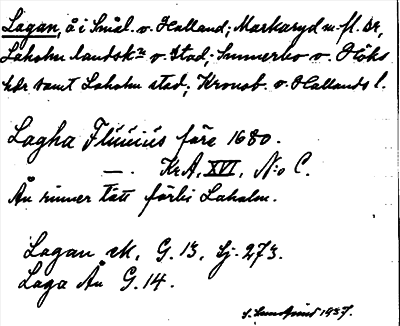 Lagan, å i Smål. o. Halland; Markaryd m. fl. sr,
Laholm landsk:n o. stad; Sunnerbo o. Höks
hdr samt Laholm stad; Kronob. o. Hallands l.
Lagha Flüüiüs före 1680.
— . KrA, XVI, N:o C.
Ån rinner tätt förbi Laholm.
Lagan ek, G. 13, Sj. 273.
Laga Ån G. 14.
1937.